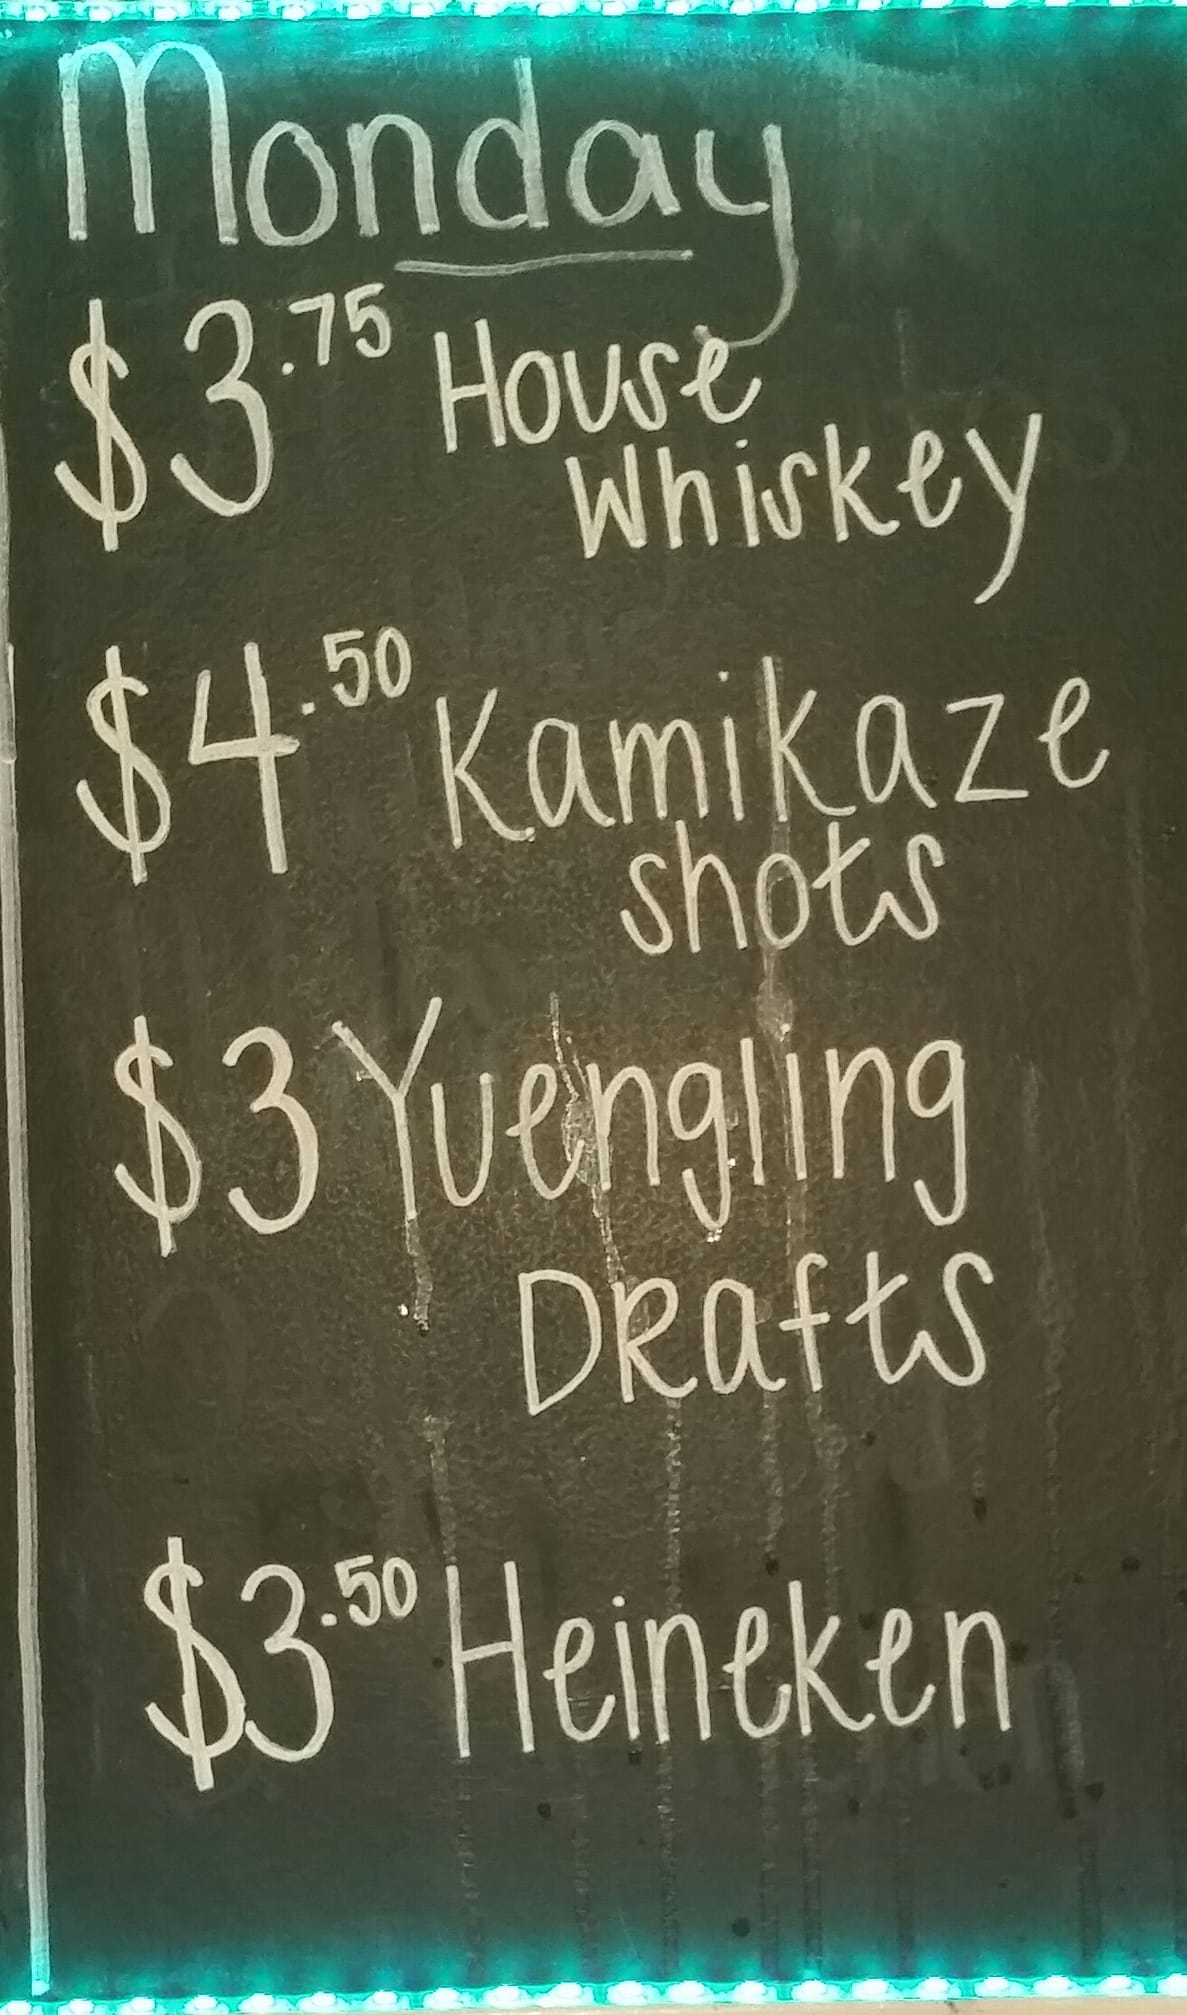 Monday
$3.75 House
Whiskey
$4.50 Kamikaze
shots
$3 Yuengling
DRafts
$3.50 Heineken